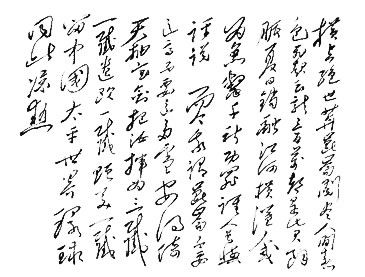 横空绝世莽昆仑阅尽人间春
色飞起玉龙三百万搅得周天寒
彻夏日销融江河横溢人或
为鱼鳖千秋功罪谁人曾与
评说 而今我谓昆仑不要
这高不要这多雪安得倚
天抽宝剑把汝挥为三截
一截遗欧一截赠美一截
留中国太平世界环球
同此凉热